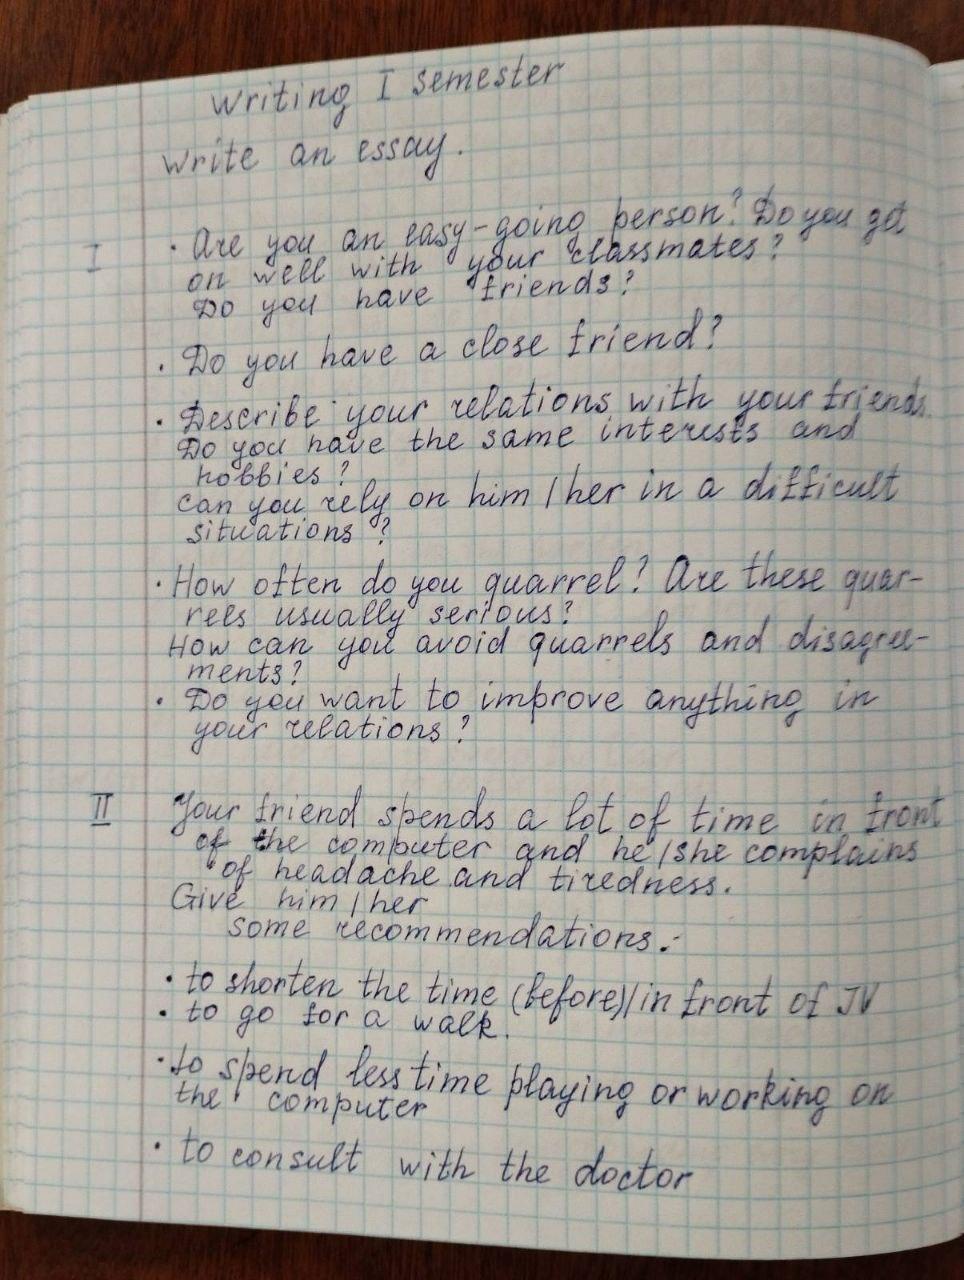 Writing I semester
Write an essay.
I · Are you an easy-going person? Do you get
on well with your classmates?
Do you have friends?
· Do you have a close friend?
· Describe your relations with your friends.
Do you have the same interests and
hobbies?
Can you rely on him/her in a difficult
situations?
· How often do you quarrel? Are these quar-
rels usually serious?
How can you avoid quarrels and disagree-
ments?
· Do you want to improve anything in
your relations?
II Your friend spends a lot of time in front
of the computer and he/she complains
of headache and tiredness.
Give him/her
some recommendations:
· to shorten the time (before)/in front of TV
· to go for a walk.
· to spend less time playing or working on
the computer
· to consult with the doctor